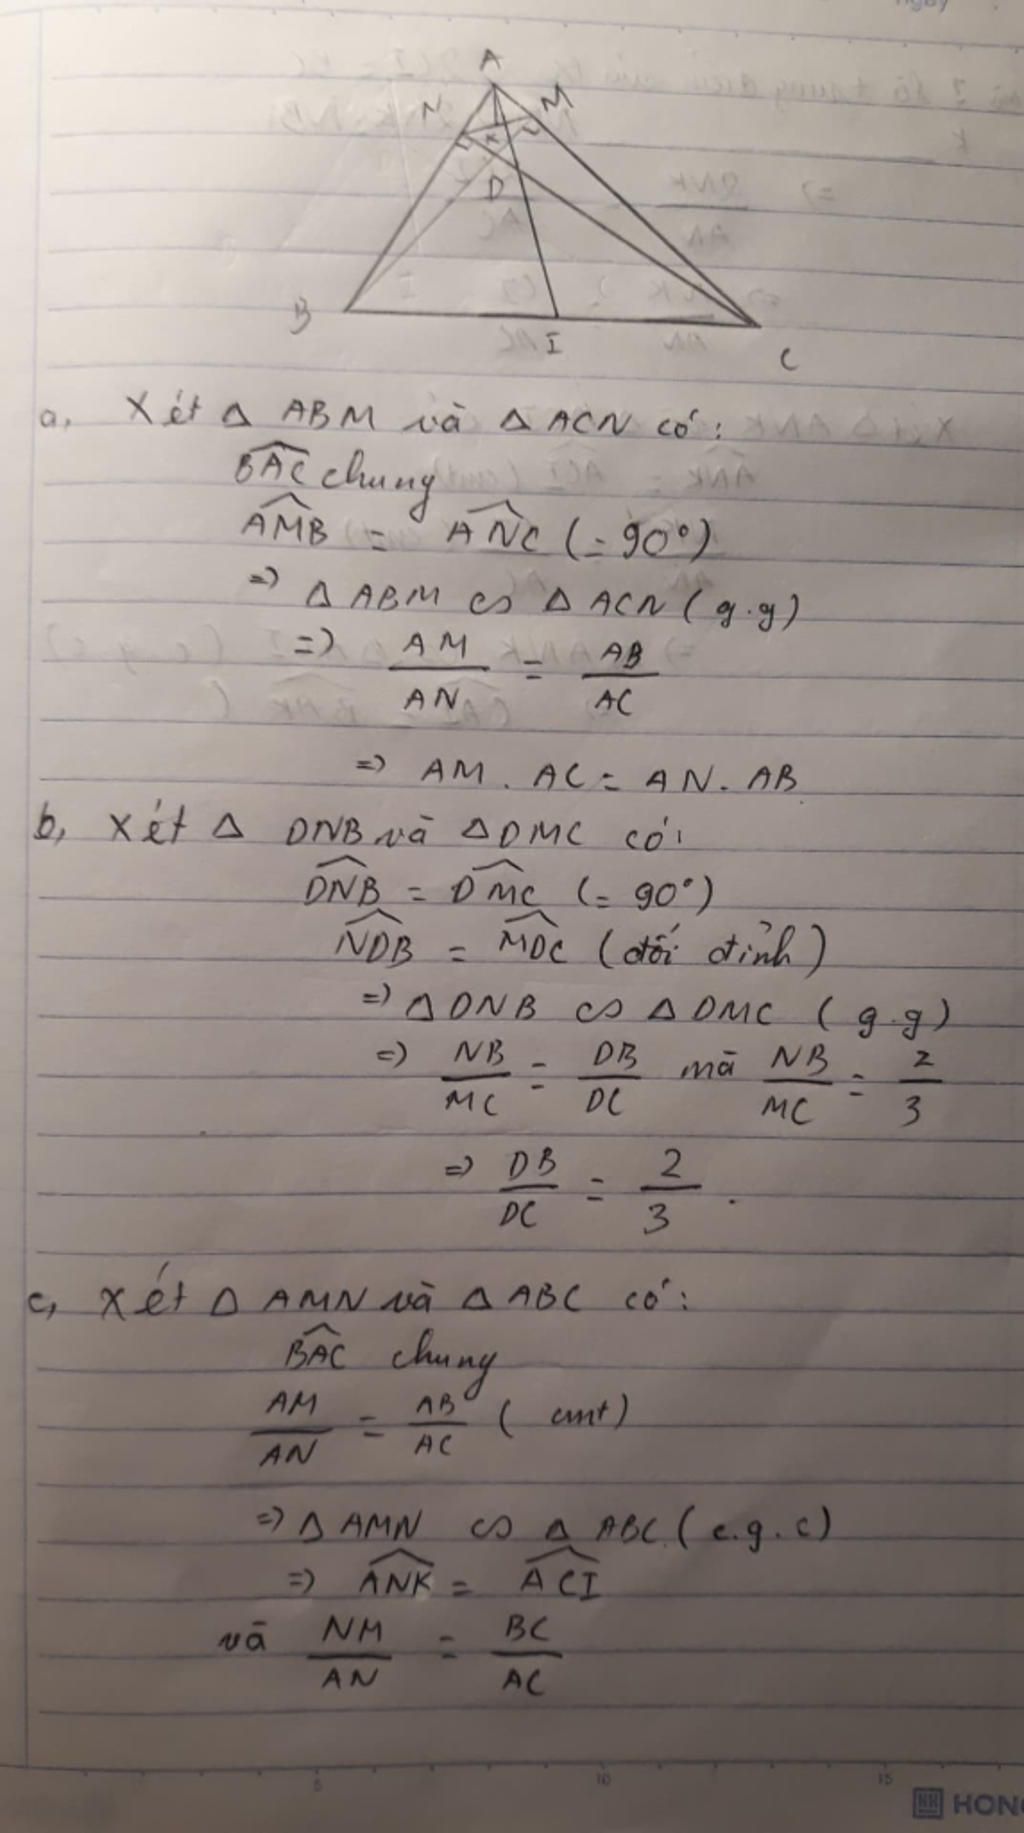 A
N M
K
D
B I C
a, Xét Δ ABM và Δ ACN có:
BAC chung
AMB = ANC (= 90°)
=> Δ ABM ∽ Δ ACN (g.g)
=> AM/AN = AB/AC
=> AM . AC = AN . AB
b, Xét Δ DNB và Δ DMC có:
DNB = DMC (= 90°)
NDB = MDC (đối đỉnh)
=> Δ DNB ∽ Δ DMC (g.g)
=> NB/MC = DB/DC mà NB/MC = 2/3
=> DB/DC = 2/3 .
c, Xét Δ AMN và Δ ABC có:
BAC chung
AM/AN = AB/AC (cmt)
=> Δ AMN ∽ Δ ABC (c.g.c)
=> ANK = ACI
và NM/AN = BC/AC
5 10 15
HONG